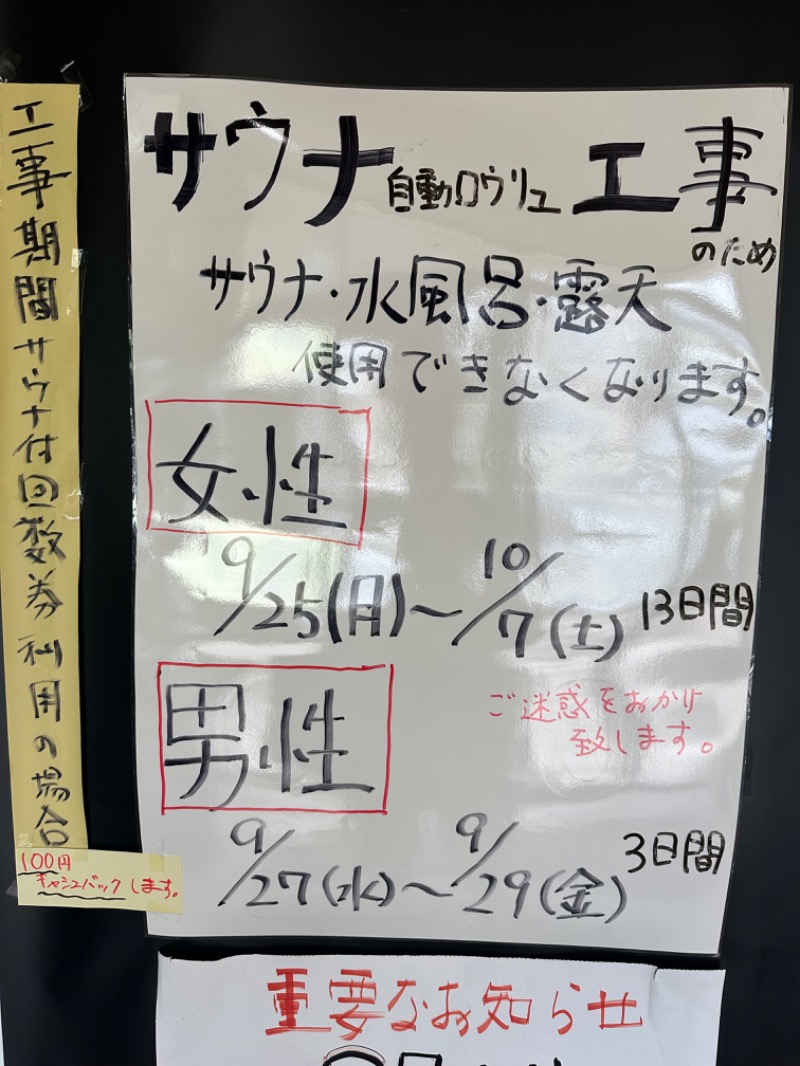 サウナ自動ロウリュ工事
のため
サウナ・水風呂・露天
使用できなくなります。
女性
9/25(月)～10/7(土) 13日間
ご迷惑をおかけ
致します。
男性
9/27(水)～9/29(金) 3日間
工事期間サウナ付回数券利用の場合
100円
キャッシュバックします。
重要なお知らせ